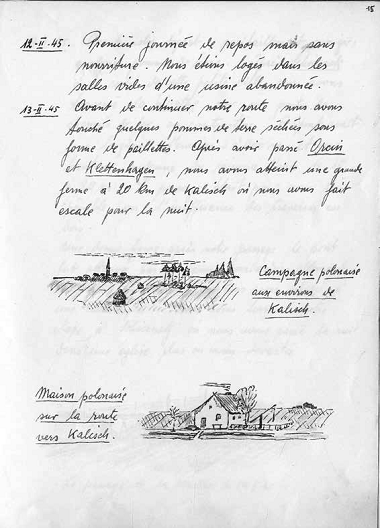 15
12-II-45. Première journée de repos mais sans
nourriture. Nous étions logés dans les
salles vides d'une usine abandonnée.
13-II-45 Avant de continuer notre route nous avons
touché quelques pommes de terre séchées sous
forme de paillettes. Après avoir passé Orcin
et Klettenhagen, nous avons atteint une grande
ferme à 20 km de Kalisch où nous avons fait
escale pour la nuit.
Campagne polonaise
aux environs de
Kalisch.
Maison polonaise
sur la route
vers Kalisch.